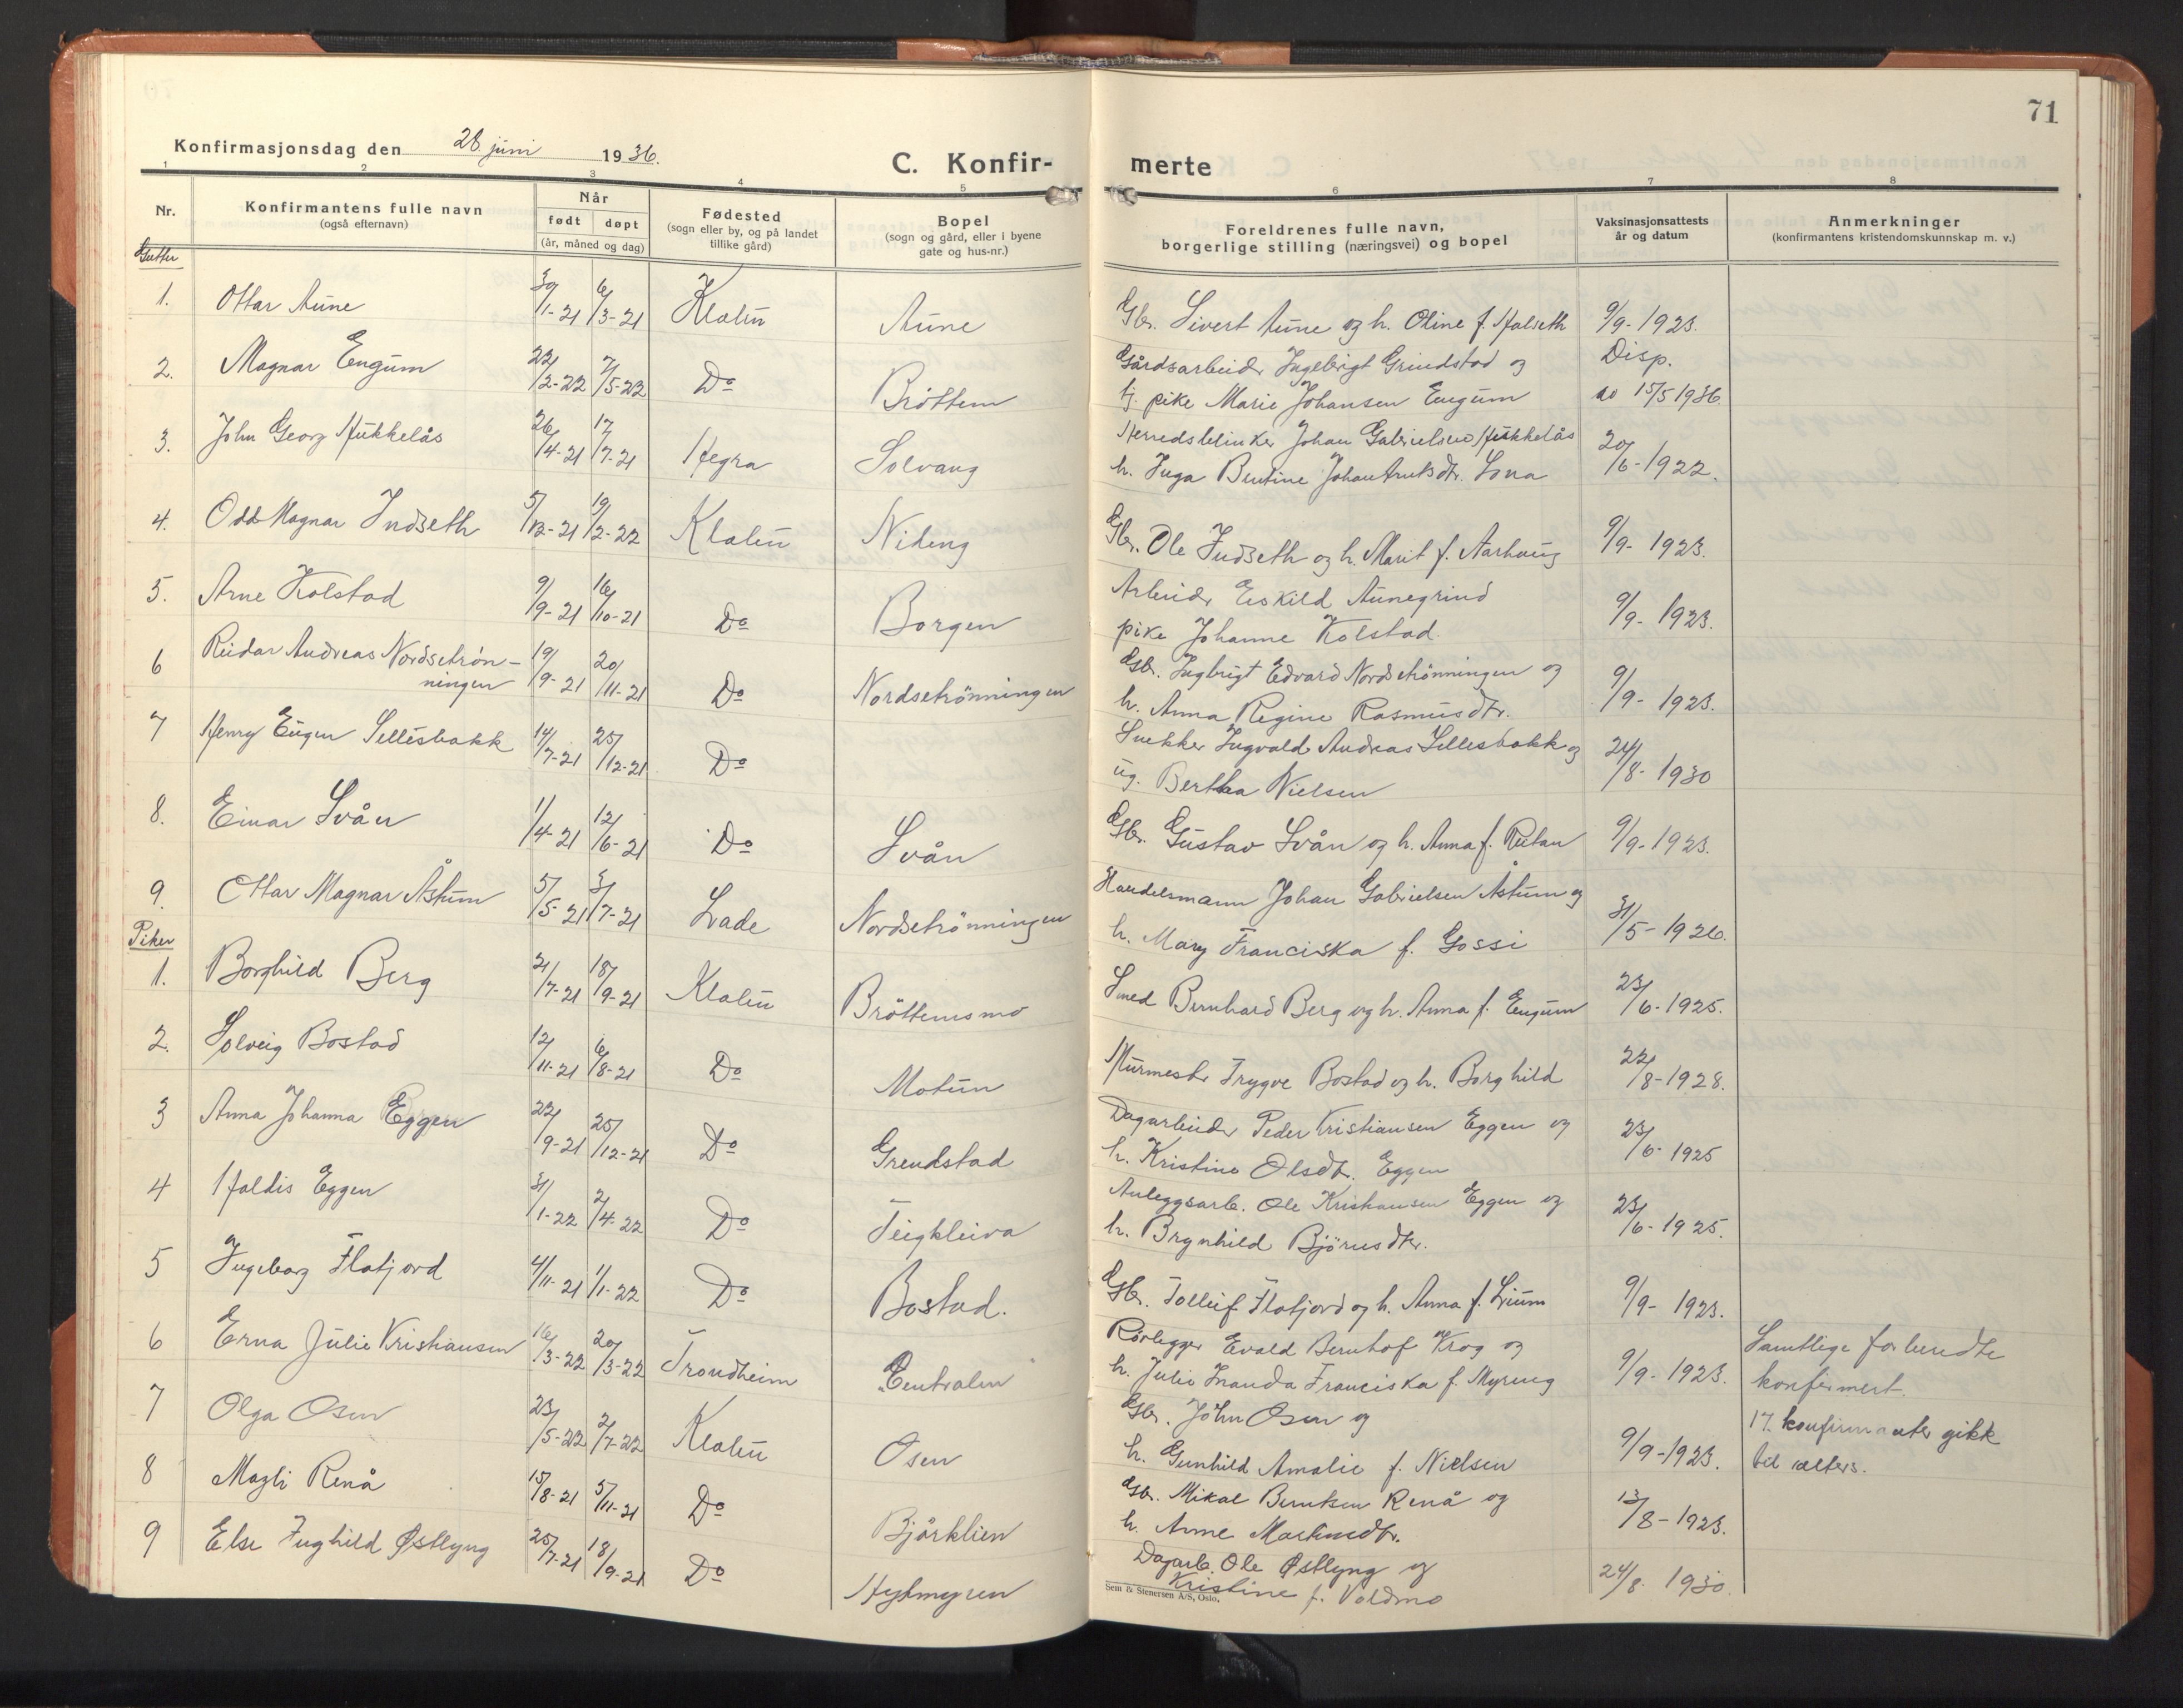 71
Konfirmasjonsdag den 28 juni 1936.
C. Konfir-
merte
1 2 3 4 5 6 7 8
Nr.
Konfirmantens fulle navn
(også efternavn)
Når
født døpt
(år, måned og dag)
Fødested
(sogn eller by, og på landet
tillike gård)
Bopel
(sogn og gård, eller i byene
gate og hus-nr.)
Foreldrenes fulle navn,
borgerlige stilling (næringsvei) og bopel
Vaksinasjonsattests
år og datum
Anmerkninger
(konfirmantens kristendomskunnskap m. v.)
Gutter
1. Ottar Aune 30/1-21 6/3-21 Klæbu Aune Gbr. Sivert Aune og h. Oline f. Halseth 9/9-1923.
2. Magnar Engum 22/2-22 7/5-22 Do Bröttem Gårdsarbeider Ingebrigt Grindstad og Disp.
tj. pike Marie Johansen Engum 15/5 1936.
3. John Georg Hukkelås 26/4-21 17/7-21 Hegra Solvang Johan Gabrielsen Hukkelås 20/6-1922.
h. Inga Bentine Johan Arntsdtr. Sona
4. Odd Magnar Indseth 5/12-21 19/2-22 Klæbu Nideng Gbr. Ole Indseth og h. Marit f. Aarhaug 9/9-1923.
5. Arne Kolstad 9/9-21 16/10-21 Do Borgen Arbeider Eskild Aunegrind 9/9-1923.
pike Johanne Kolstad.
6 Reidar Andreas Nordsetrön- 19/9-21 20/11-21 Do Nordsetrönningen Gbr. Ingbrigt Edvard Nordsetrönningen og 9/9-1923.
ningen h. Anna Regine Rasmusdtr.
7 Henry Eugen Sellesbakk 14/7-21 25/12-21 Do Snekker Ingvald Andreas Sellesbakk og 24/8-1930
ug. Bertha Nielsen
8. Einar Svån 1/4-21 12/6-21 Do Svån Gbr. Gustav Svån og h. Anna f. Reitan 9/9-1923.
9. Ottar Magnar Åstum 5/5-21 3/7-21 Lade Nordsetrönningen Handelsmann Johan Gabrielsen Åstum og 31/5-1926.
h. Mary Franciska f. Gossi
Piker
1. Borghild Berg 2/7-21 18/9-21 Klæbu Bröttemsmo Smed Bernhard Berg og h. Anna f. Engum 23/6-1925.
2. Solveig Bostad 12/11-21 6/8-21 Do Motun Murmester Trygve Bostad og h. Borghild 22/8-1928.
3 Anna Johanna Eggen 22/9-21 25/12-21 Do Grendstad Dagarbeider Peder Kristiansen Eggen og 23/6-1925
h. Kristine Olsdtr. Eggen
4 Haldis Eggen 31/1-22 2/4-22 Do Teigkleiva Anleggsarb. Ole Kristiansen Eggen og 23/6-1925.
h. Brynhild Björnsdtr.
5 Ingeborg Flatjord 4/11-21 1/1-22 Do Bostad. Gbr. Tolleif Flatjord og h. Anna f. Lium 9/9-1923.
6 Erna Julie Kristiansen 16/3-22 20/3-22 Trondheim Centralen Rørlegger Evald Bernhof Krog og 9/9-1923. Samtlige forberedte
h. Julie Franciska f. Myreng konfirmert.
7 Olga Osen 23/5-22 2/7-22 Klæbu Osen Gbr. John Osen og 9/9-1923. 17 konfirmanter gikk
h. Gunhild Amalie f. Nielsen til alters.
8 Magli Renå 15/8-21 5/11-21 Do Björklien Gbr. Mikal Berntsen Renå og 13/8-1923.
h. Anne Martinsdtr.
9 Else Inghild Østlyng 25/7-21 18/9-21 Do Heggmyren Dagarb. Ole Østlyng og 24/8 1930.
Kristine f. Voldmo
Sem & Stenersen A/S, Oslo.